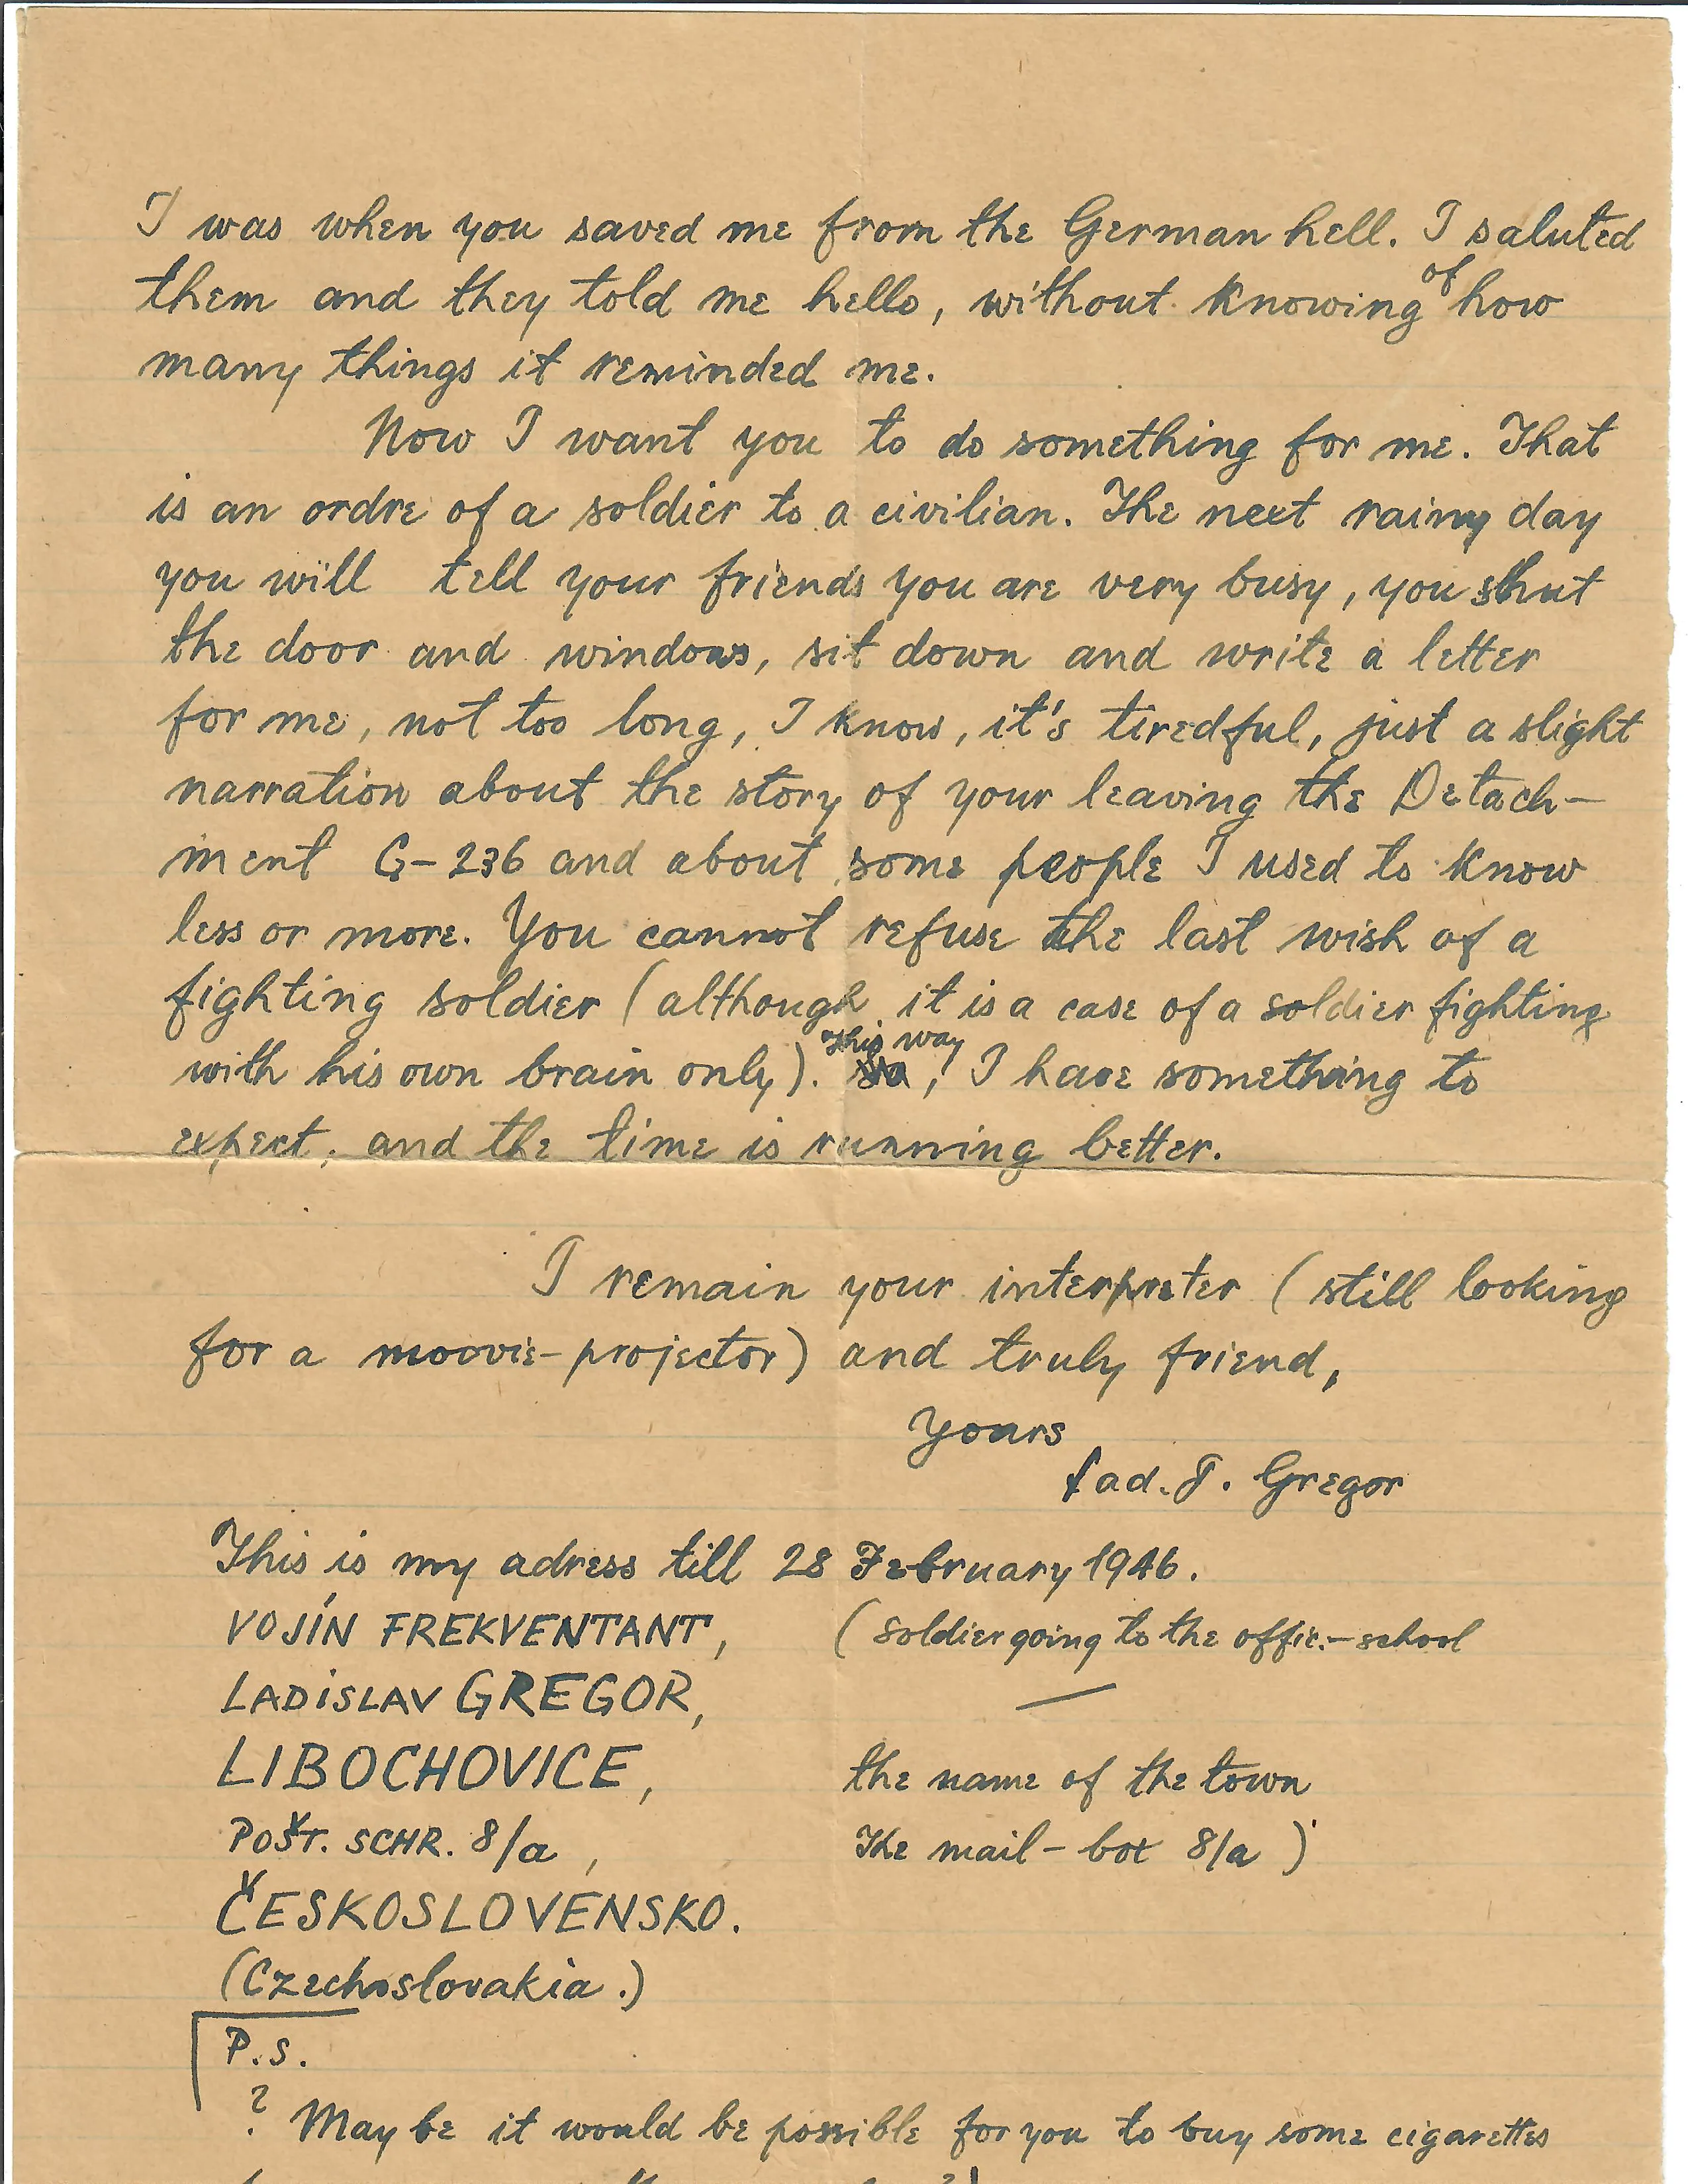 I was when you saved me from the German hell. I saluted
them and they told me hello, without knowing of how
many things it reminded me.
Now I want you to do something for me. That
is an ordre of a soldier to a civilian. The next rainy day
you will tell your friends you are very busy, you shut
the door and windows, sit down and write a letter
for me, not too long, I know, it's tiredful, just a slight
narration about the story of your leaving the Detach-
ment G-236 and about some people I used to know
less or more. You cannot refuse the last wish of a
fighting soldier (although it is a case of a soldier fighting
with his own brain only). This way, I have something to
expect, and the time is running better.
I remain your interpreter (still looking
for a moovie-projector) and truly friend,
Yours
Lad. J. Gregor
This is my adress till 28 February 1946.
VOJÍN FREKVENTANT, (soldier going to the offic.-school
LADISLAV GREGOR, —
LIBOCHOVICE, the name of the town
POŠT. SCHR. 8/a, The mail-box 8/a)
ČESKOSLOVENSKO.
(Czechoslovakia.)
P.S.
? May be it would be possible for you to buy some cigarettes